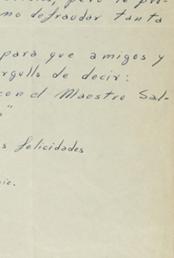 pero lo pri-
mo defraudar tanta
para que amigos y
rgullo de decir:
con el Maestro Sal-
"
s felicidades